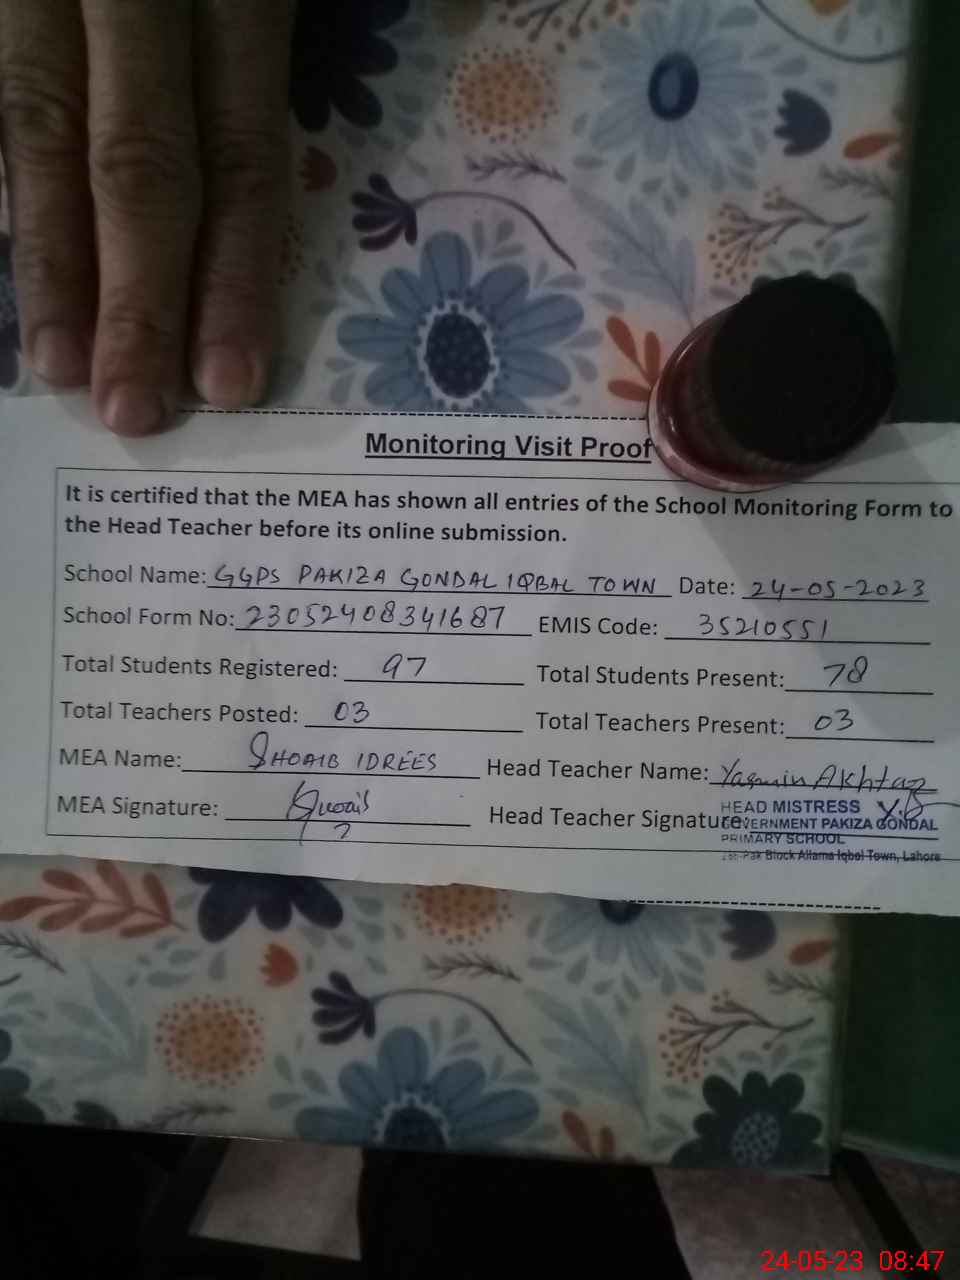 Monitoring Visit Proof
It is certified that the MEA has shown all entries of the School Monitoring Form to
the Head Teacher before its online submission.
School Name: GGPS PAKIZA GONDAL IQBAL TOWN Date: 24-05-2023
School Form No: 23052408341687 EMIS Code: 35210551
Total Students Registered: 97 Total Students Present: 78
Total Teachers Posted: 03 Total Teachers Present: 03
MEA Name: SHOAIB IDREES Head Teacher Name: Yasmin Akhtar
MEA Signature: Shoaib Head Teacher Signature:
HEAD MISTRESS
GOVERNMENT PAKIZA GONDAL
PRIMARY SCHOOL
Pak Block Allama Iqbal Town, Lahore
24-05-23 08:47